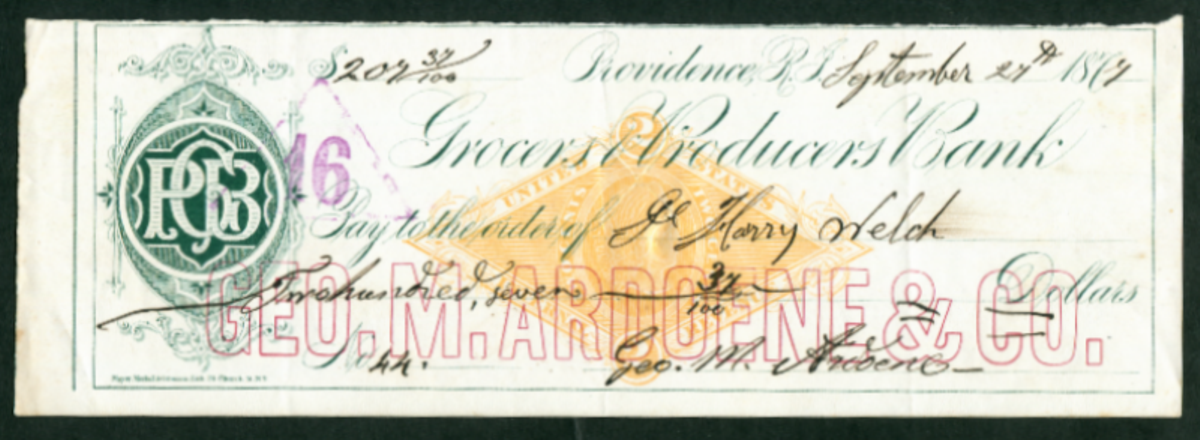 $ 207 37/100 Providence, R.I. September 27th 1877
Grocers & Producers Bank
PGB
16
2
UNITED STATES
Pay to the order of Harry Welch
Two hundred, seven 37/100 Dollars
GEO. M. ARDOENE & CO.
No 44. Geo. M. Ardoene